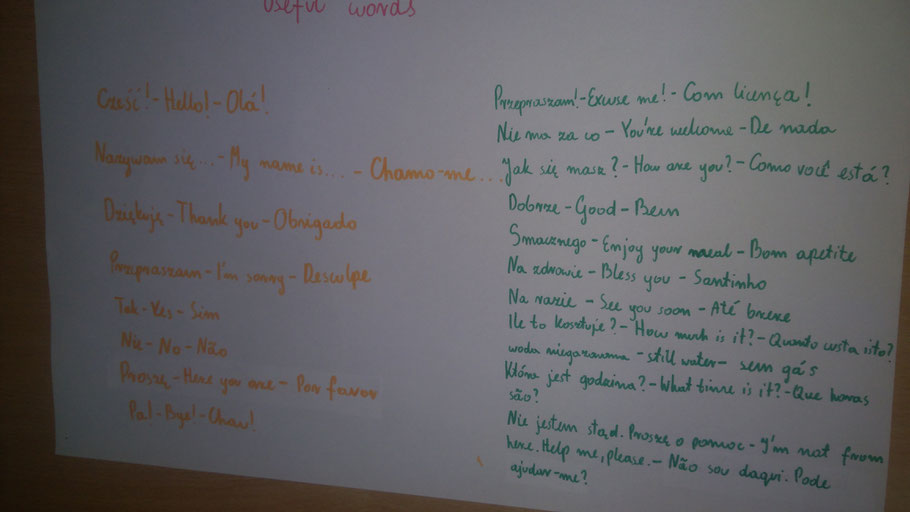 Useful words
Cześć! - Hello! - Olá!
Nazywam się... - My name is.... - Chamo-me...
Dziękuję - Thank you - Obrigado
Przepraszam - I'm sorry - Desculpe
Tak - Yes - Sim
Nie - No - Não
Proszę - Here you are - Por favor
Pa! - Bye! - Chau!
Przepraszam! - Excuse me! - Com licença!
Nie ma za co - You're welcome - De nada
Jak się masz? - How are you? - Como você está?
Dobrze - Good - Bem
Smacznego - Enjoy your meal - Bom apetite
Na zdrowie - Bless you - Santinho
Na razie - See you soon - Até breve
Ile to kosztuje? - How much is it? - Quanto custa isto?
woda niegazowana - still water - sem gás
Która jest godzina? - What time is it? - Que horas
são?
Nie jestem stąd. Proszę o pomoc - I'm not from
here. Help me, please. - Não sou daqui. Pode
ajudar-me?